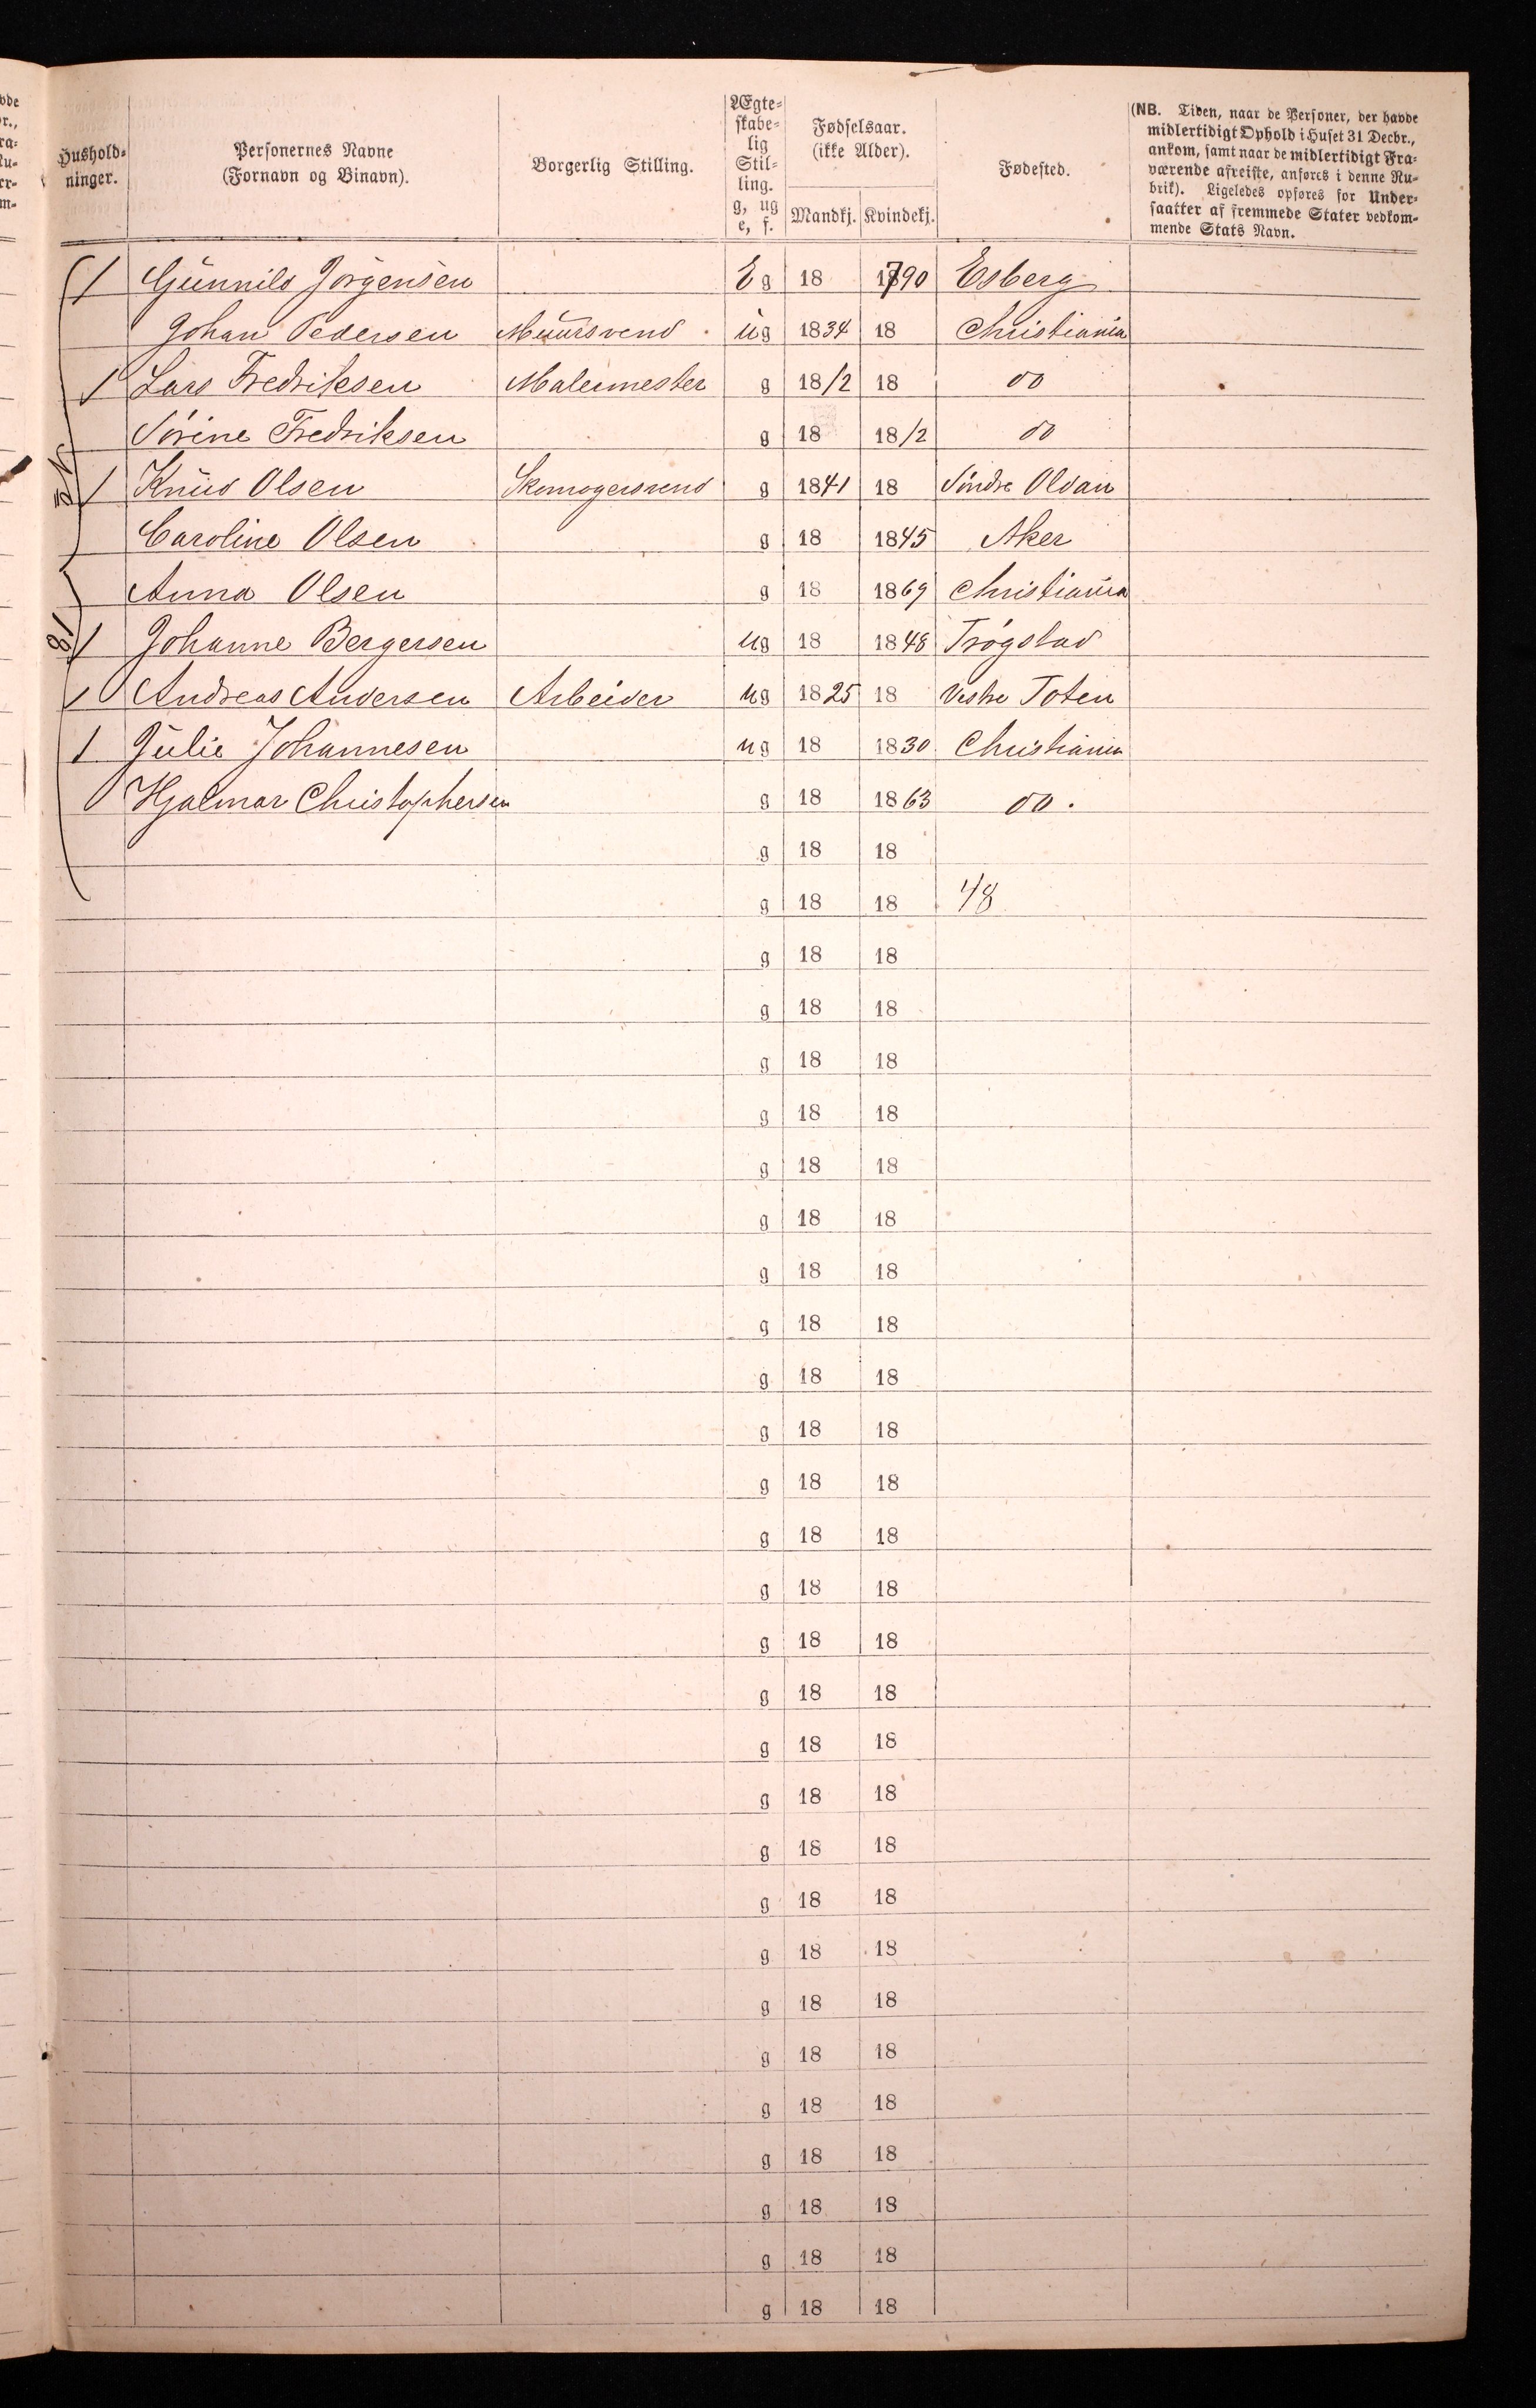 Hushold-
ninger.
Personernes Navne
(Fornavn og Binavn).
Borgerlig Stilling.
Ægte-
skabe-
lig
Stil-
ling.
g, ug
e, f.
Fødselsaar.
(ikke Alder).
Mandkj. Kvindekj.
Fødested.
(NB. Tiden, naar de Personer, der havde
midlertidigt Ophold i Huset 31 Decbr.,
ankom, samt naar de midlertidigt Fra-
værende afreiste, anføres i denne Ru-
brik). Ligeledes opføres for Under-
saatter af fremmede Stater vedkom-
mende Stats Navn.
1 Gunnild Jørgensen Eg 18 1790 Esberg
Johan Pedersen Muursvend ug 1834 18 Christiania
1 Lars Fredriksen Malermester g 1812 18 do
Sørine Fredriksen g 18 1812 do
1 Knud Olsen Skomagersvend g 1841 18 Søndre Oldan
Caroline Olsen g 18 1845 Aker
Anna Olsen g 18 1869 Christiania
1 Johanne Bergersen ug 18 1848 Trøgstad
1 Andreas Andersen Arbeider ug 1825 18 Vestre Toten
1 Julie Johannesen ug 18 1830 Christiania
Hjalmar Christophersen g 18 1863 do.
g 18 18
g 18 18 48
g 18 18
g 18 18
g 18 18
g 18 18
g 18 18
g 18 18
g 18 18
g 18 18
g 18 18
g 18 18
g 18 18
g 18 18
g 18 18
g 18 18
g 18 18
g 18 18
g 18 18
g 18 18
g 18 18
g 18 18
g 18 18
g 18 18
g 18 18
g 18 18
g 18 18
g 18 18
g 18 18